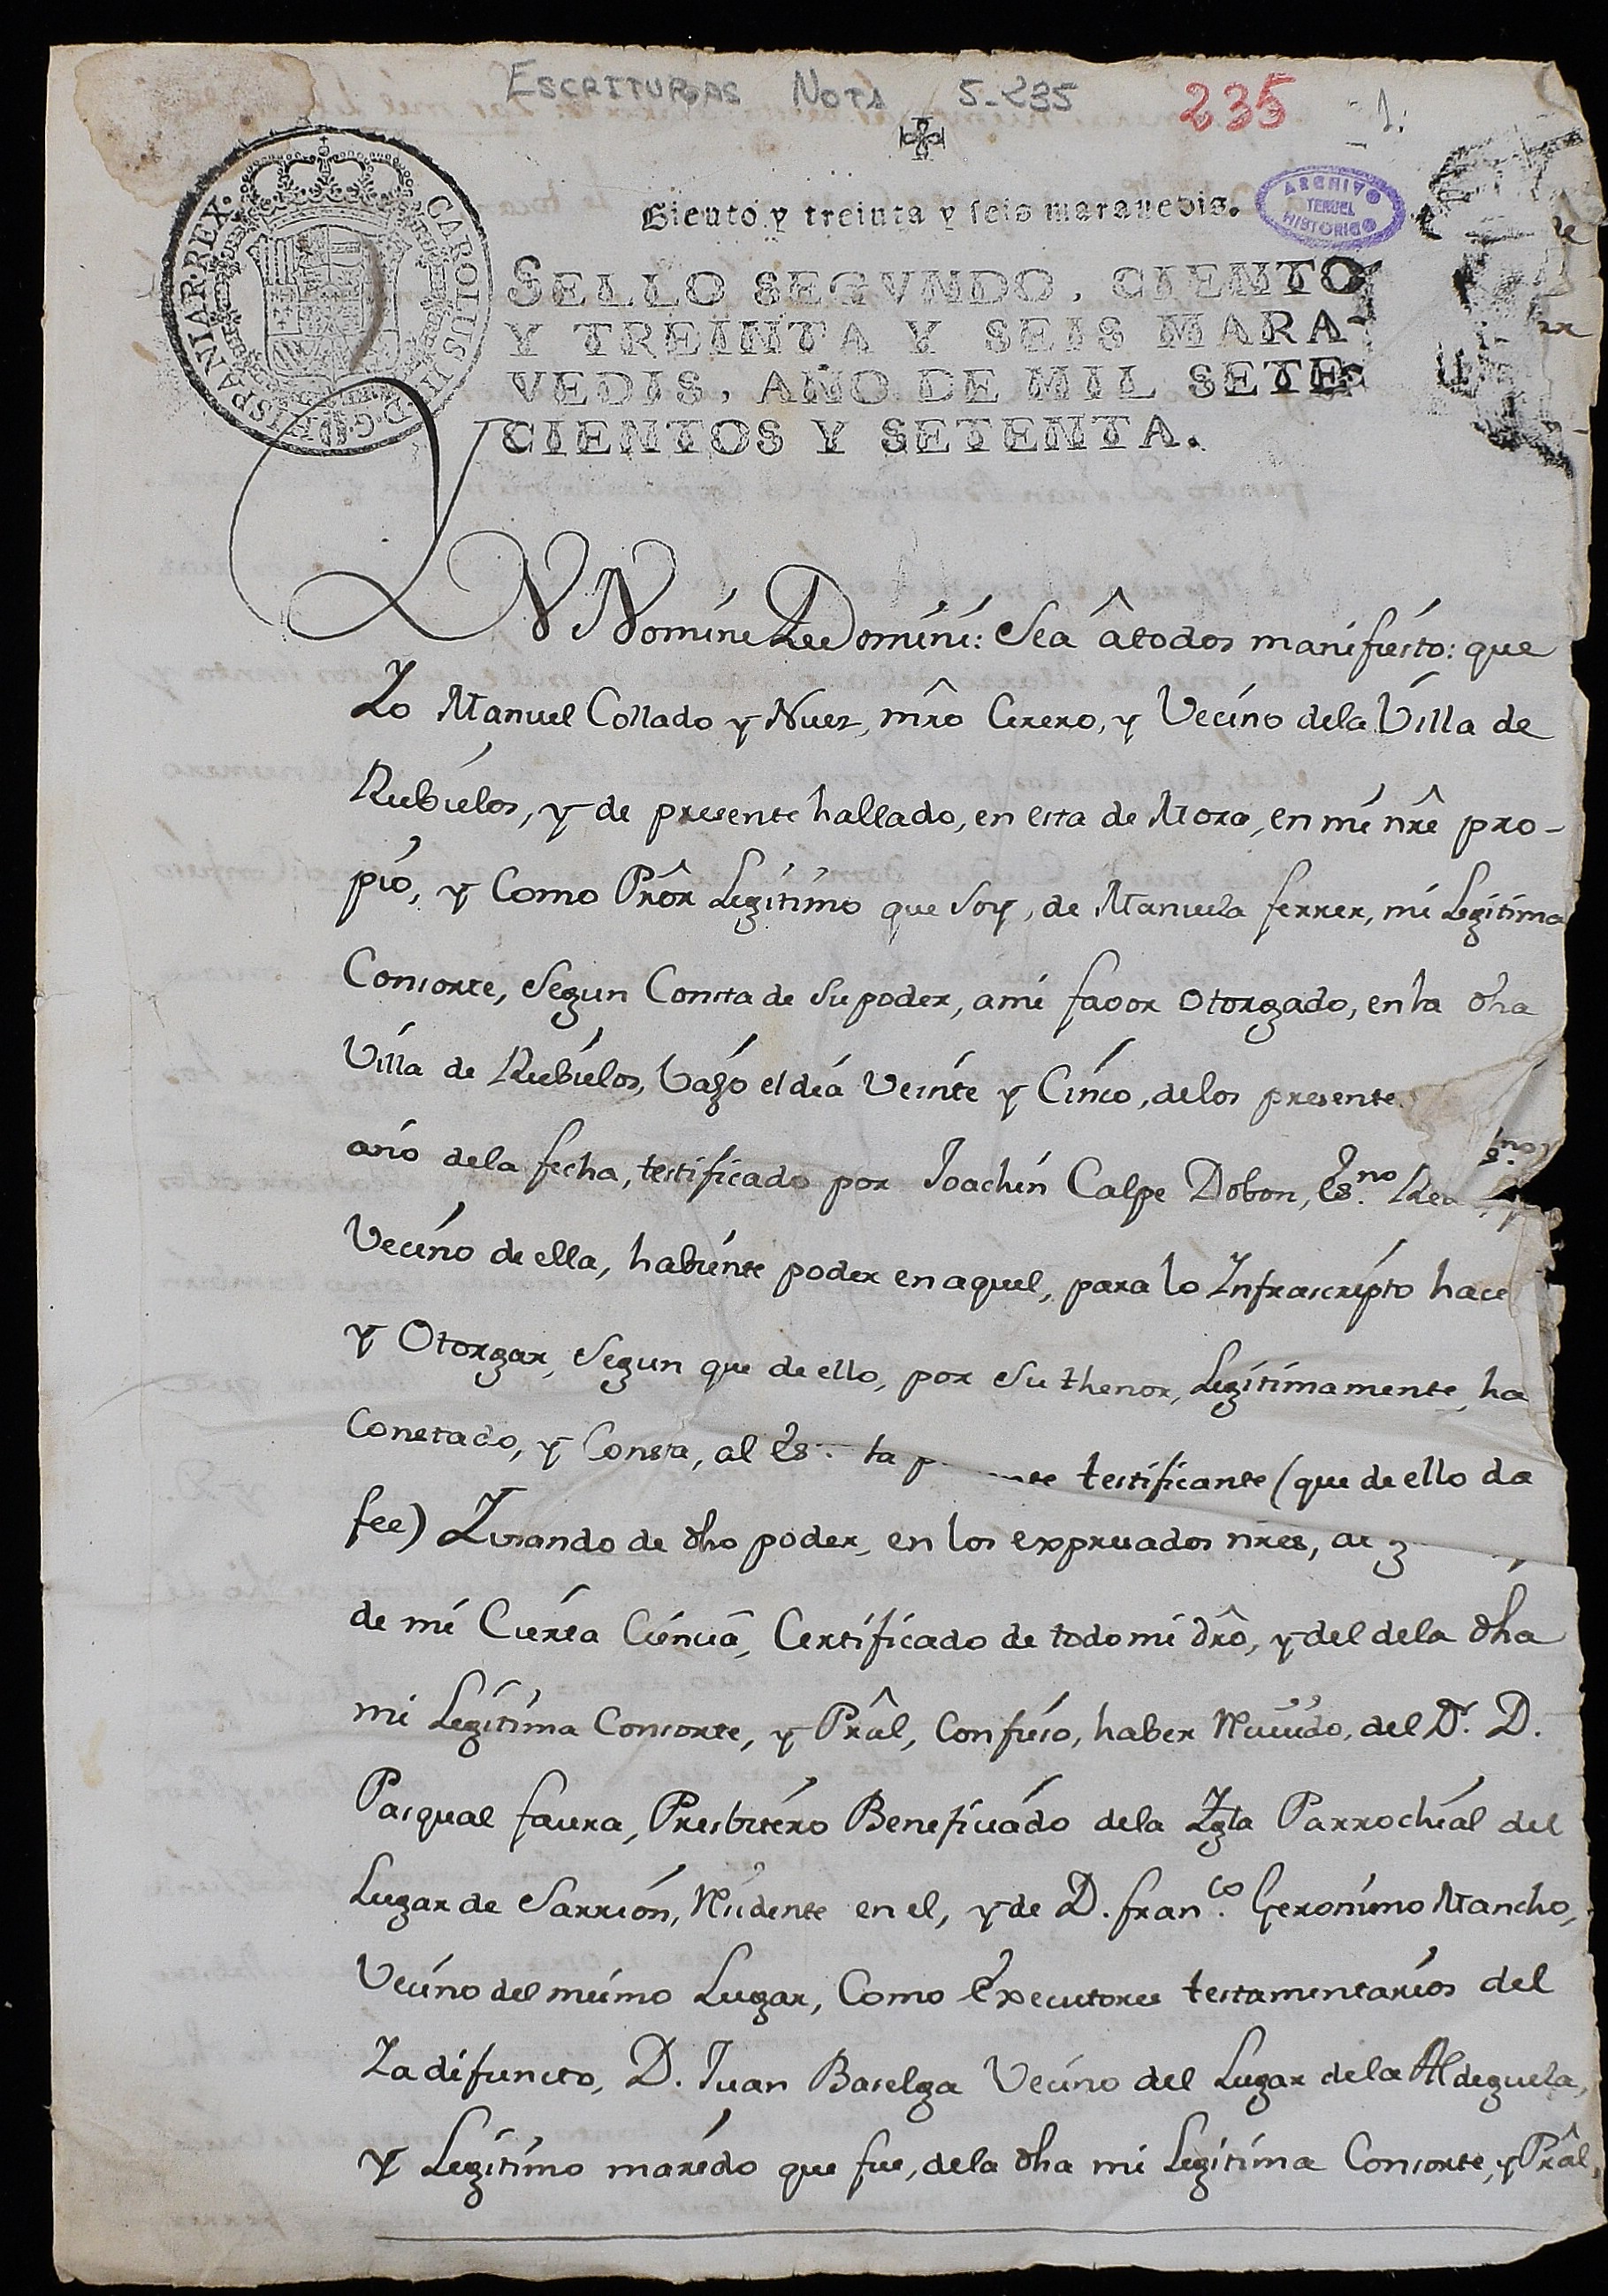 ESCRITURAS NOTA 5-235 235 1.
Siento y treinta y seis maravedis.
ARCHIVO
TERUEL
HISTORICO
CAROLUS III D.G. HISPANIAR. REX.
SELLO SEGVNDO, CIENTO
Y TREINTA Y SEIS MARA-
VEDIS, AÑO DE MIL SETE
CIENTOS Y SETENTA.
YN Nomine Dei Domini: Sea â todos manifiesto: que
Yo Manuel Collado y Nuez, mrô Cerero, y Vecino dela Villa de
Rubielos, y de presente hallado, en esta de Mora, en mi nrê pro-
pio, y Como Prôr Legitimo que Soy, de Manuela ferrer, mi Legitima
Consorte, Segun Consta de Su poder, a mi favor Otorgado, en la dha
Villa de Rubielos, bajo el dia Veinte y Cinco, delos presente
año dela fecha, testificado por Joachin Calpe Dobon, Es.no
Vecino de ella, habiente poder en aquel, para lo Infrascripto hace
y Otorgar, Segun que de ello, por Su thenor, Legitimamente, ha
Constado, y Consta, al Es. testificante (que de ello da
fee) Vsando de dho poder, en los expresados nres, de
de mi Cierta Ciencia, Certificado de todo mi drô, y del dela dha
mi Legitima Consorte, y Prâl, Confieso, haber Recivido, del Dr. D.
Pasqual faura, Presbitero Beneficiado dela Ygla Parrochial del
Lugar de Sarrion, Residente en el, y de D. fran.co Geronimo Mancho,
Vecino del mismo Lugar, Como Executores testamentarios del
Ya difuncto, D. Juan Baselga Vecino del Lugar dela Aldeguela,
y Legitimo marido que fue, dela dha mi Legitima Consorte, y Prâl,